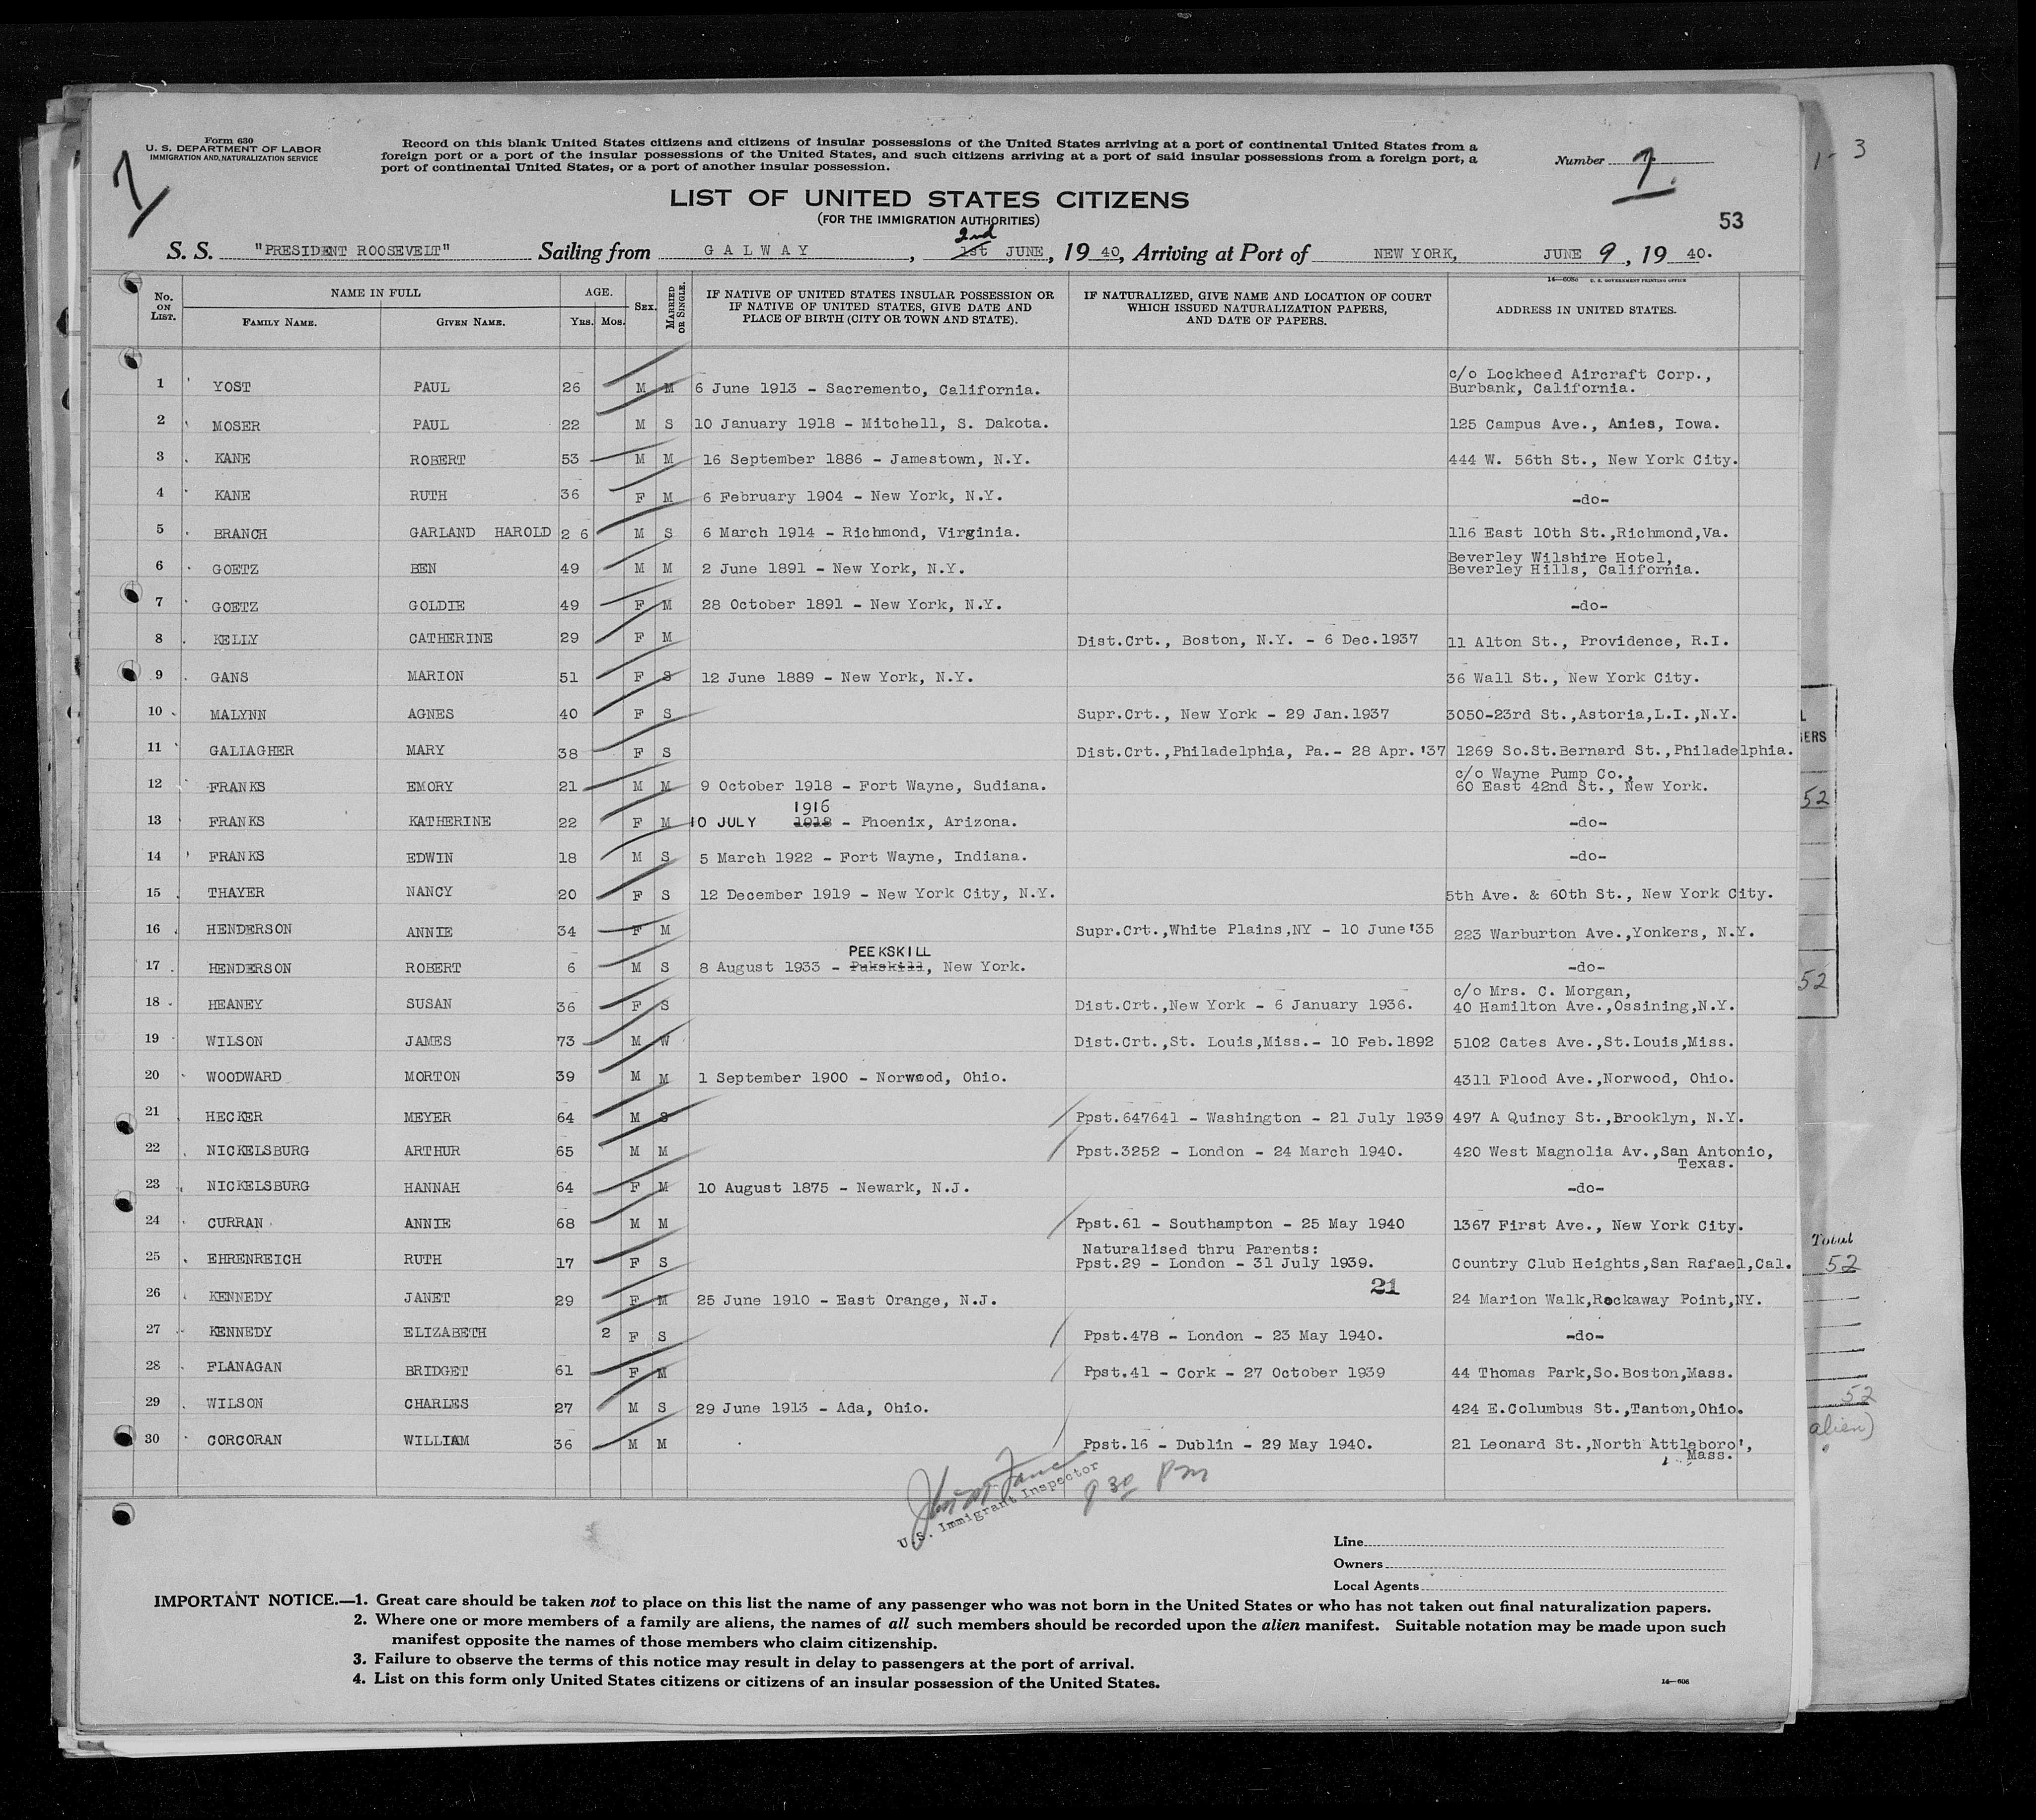 Form 630
U. S. DEPARTMENT OF LABOR
IMMIGRATION AND NATURALIZATION SERVICE
7
Record on this blank United States citizens and citizens of insular possessions of the United States arriving at a port of continental United States from a
foreign port or a port of the insular possessions of the United States, and such citizens arriving at a port of said insular possessions from a foreign port, a
port of continental United States, or a port of another insular possession.
Number 7.
1-3
LIST OF UNITED STATES CITIZENS
(FOR THE IMMIGRATION AUTHORITIES)
53
2nd
S. S. "PRESIDENT ROOSEVELT" Sailing from GALWAY, 1st JUNE, 19 40, Arriving at Port of NEW YORK, JUNE 9, 19 40.
14—606c U. S. GOVERNMENT PRINTING OFFICE
No. ON LIST. NAME IN FULL FAMILY NAME. GIVEN NAME. AGE. YRS. MOS. SEX. MARRIED OR SINGLE. IF NATIVE OF UNITED STATES INSULAR POSSESSION OR IF NATIVE OF UNITED STATES, GIVE DATE AND PLACE OF BIRTH (CITY OR TOWN AND STATE). IF NATURALIZED, GIVE NAME AND LOCATION OF COURT WHICH ISSUED NATURALIZATION PAPERS, AND DATE OF PAPERS. ADDRESS IN UNITED STATES.
1 YOST PAUL 26 M M 6 June 1913 - Sacremento, California. c/o Lockheed Aircraft Corp., Burbank, California.
2 MOSER PAUL 22 M S 10 January 1918 - Mitchell, S. Dakota. 125 Campus Ave., Anies, Iowa.
3 KANE ROBERT 53 M M 16 September 1886 - Jamestown, N.Y. 444 W. 56th St., New York City.
4 KANE RUTH 36 F M 6 February 1904 - New York, N.Y. -do-
5 BRANCH GARLAND HAROLD 2 6 M S 6 March 1914 - Richmond, Virginia. 116 East 10th St.,Richmond,Va.
6 GOETZ BEN 49 M M 2 June 1891 - New York, N.Y. Beverley Wilshire Hotel, Beverley Hills, California.
7 GOETZ GOLDIE 49 F M 28 October 1891 - New York, N.Y. -do-
8 KELLY CATHERINE 29 F M Dist.Crt., Boston, N.Y. - 6 Dec.1937 11 Alton St., Providence, R.I.
9 GANS MARION 51 F S 12 June 1889 - New York, N.Y. 36 Wall St., New York City.
10 MALYNN AGNES 40 F S Supr.Crt., New York - 29 Jan.1937 3050-23rd St.,Astoria,L.I.,N.Y.
11 GALIAGHER MARY 38 F S Dist.Crt.,Philadelphia, Pa.- 28 Apr.'37 1269 So.St.Bernard St.,Philadelphia.
12 FRANKS EMORY 21 M M 9 October 1918 - Fort Wayne, Sudiana. c/o Wayne Pump Co., 60 East 42nd St., New York.
1916
13 FRANKS KATHERINE 22 F M 10 JULY 1918 - Phoenix, Arizona. -do-
14 FRANKS EDWIN 18 M S 5 March 1922 - Fort Wayne, Indiana. -do-
15 THAYER NANCY 20 F S 12 December 1919 - New York City, N.Y. 5th Ave. & 60th St., New York City.
16 HENDERSON ANNIE 34 F M Supr.Crt.,White Plains,NY - 10 June'35 223 Warburton Ave.,Yonkers, N.Y.
PEEKSKILL
17 HENDERSON ROBERT 6 M S 8 August 1933 - Pakskill, New York. -do-
18 HEANEY SUSAN 36 F S Dist.Crt.,New York - 6 January 1936. c/o Mrs. C. Morgan, 40 Hamilton Ave.,Ossining,N.Y.
19 WILSON JAMES 73 M W Dist.Crt.,St. Louis,Miss.- 10 Feb.1892 5102 Cates Ave.,St.Louis,Miss.
20 WOODWARD MORTON 39 M M 1 September 1900 - Norwood, Ohio. 4311 Flood Ave.,Norwood, Ohio.
21 HECKER MEYER 64 M S Ppst.647641 - Washington - 21 July 1939 497 A Quincy St.,Brooklyn, N.Y.
22 NICKELSBURG ARTHUR 65 M M Ppst.3252 - London - 24 March 1940. 420 West Magnolia Av.,San Antonio, Texas.
23 NICKELSBURG HANNAH 64 F M 10 August 1875 - Newark, N.J. -do-
24 CURRAN ANNIE 68 M M Ppst.61 - Southampton - 25 May 1940 1367 First Ave., New York City.
25 EHRENREICH RUTH 17 F S Naturalised thru Parents: Ppst.29 - London - 31 July 1939. Country Club Heights,San Rafael,Cal.
21
26 KENNEDY JANET 29 F M 25 June 1910 - East Orange, N.J. 24 Marion Walk,Rockaway Point,NY.
27 KENNEDY ELIZABETH 2 F S Ppst.478 - London - 23 May 1940. -do-
28 FLANAGAN BRIDGET 61 F M Ppst.41 - Cork - 27 October 1939 44 Thomas Park,So.Boston,Mass.
29 WILSON CHARLES 27 M S 29 June 1913 - Ada, Ohio. 424 E.Columbus St.,Tanton,Ohio.
30 CORCORAN WILLIAM 36 M M Ppst.16 - Dublin - 29 May 1940. 21 Leonard St.,North Attleboro', Mass.
U.S. Immigrant Inspector
9 30 pm
Line
Owners
Local Agents
IMPORTANT NOTICE.—1. Great care should be taken not to place on this list the name of any passenger who was not born in the United States or who has not taken out final naturalization papers.
2. Where one or more members of a family are aliens, the names of all such members should be recorded upon the alien manifest. Suitable notation may be made upon such
manifest opposite the names of those members who claim citizenship.
3. Failure to observe the terms of this notice may result in delay to passengers at the port of arrival.
4. List on this form only United States citizens or citizens of an insular possession of the United States.
14—606
L
ERS
52
52
Total
52
52
alien)